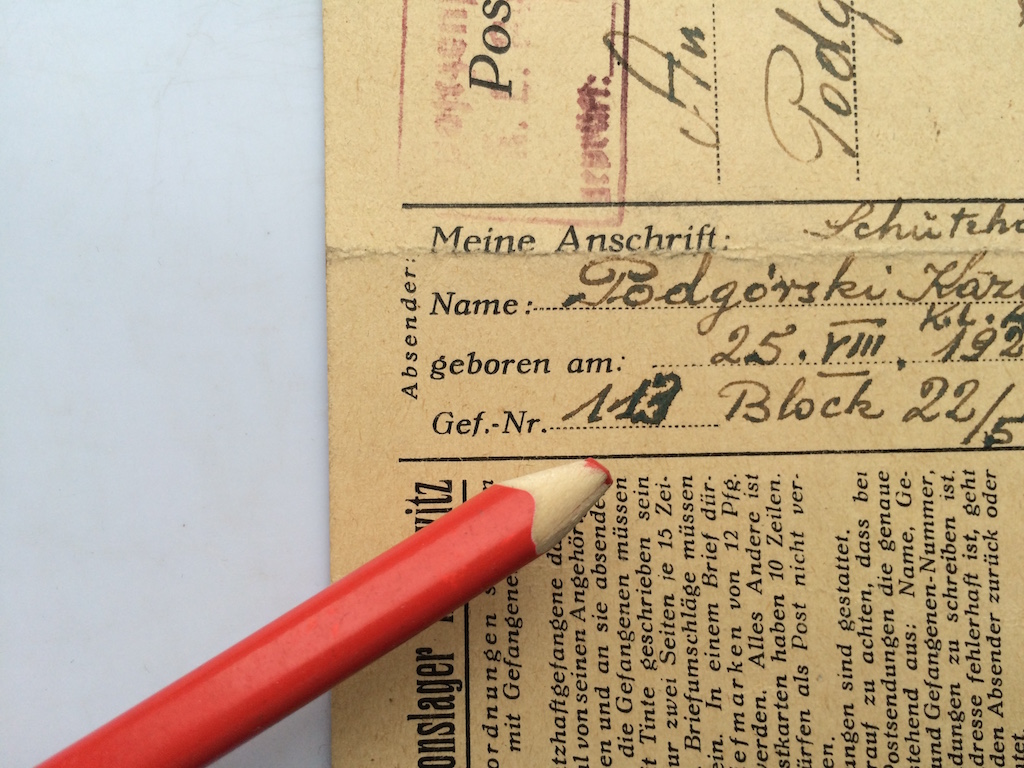 Pos
geprüft.
An
Podg
Absender:
Meine Anschrift: Schützh
Name: Podgórski Kazi
K.L.
geboren am: 25. VIII. 192
Gef.-Nr. 113 Block 22/5
onslager witz
ordnungen
mit Gefangene
tzhaftgefangene da
l von seinen Angehör
en und an sie absende
die Gefangenen müssen
t Tinte geschrieben sein
ur zwei Seiten je 15 Zei-
Briefumschläge müssen
ein. In einem Brief dür-
efmarken von 12 Pfg.
werden. Alles Andere ist
stkarten haben 10 Zeilen.
ürfen als Post nicht ver-
en.
ungen sind gestattet.
rauf zu achten, dass bei
Postsendungen die genaue
stehend aus: Name, Ge-
und Gefangenen-Nummer,
dungen zu schreiben ist.
dresse fehlerhaft ist, geht
den Absender zurück oder